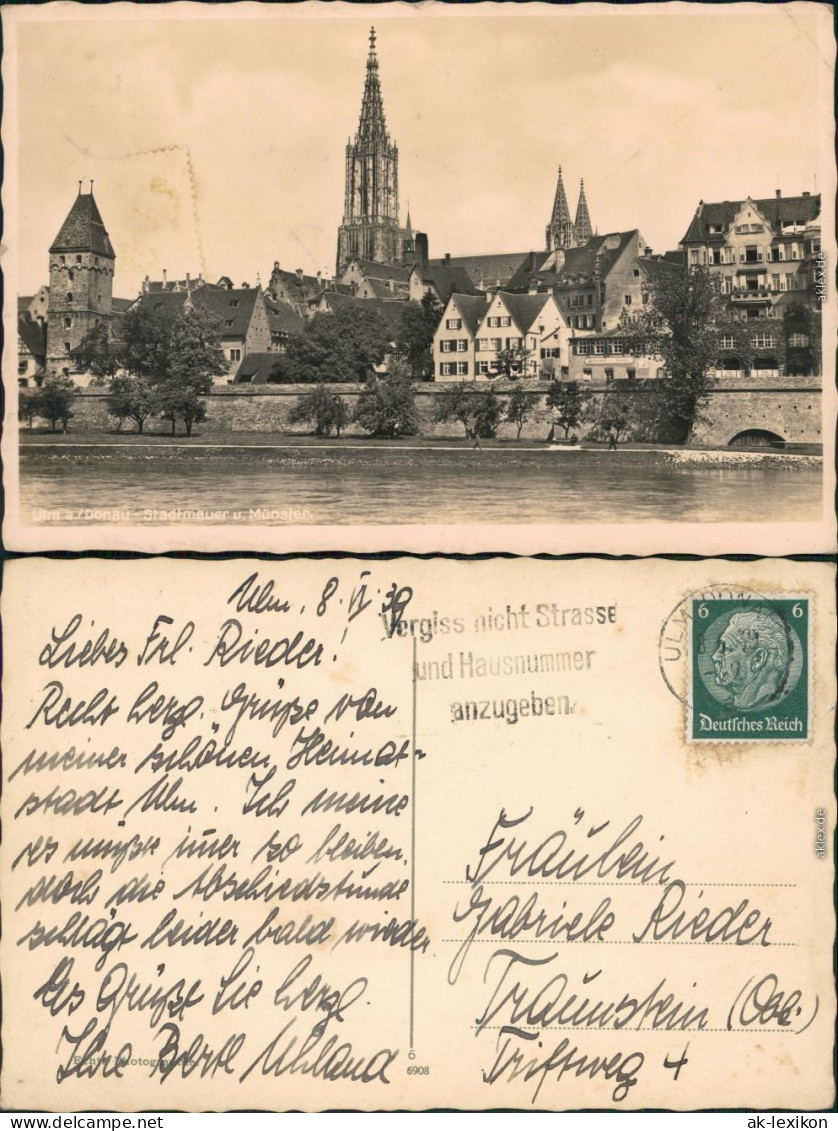 Ulm a/Donau - Stadtmauer u. Münster.
aklex.de
Ulm, 8. VI. 39
Liebes Frl. Rieder!
Recht herzl. Grüße von
meiner schönen Heimat-
stadt Ulm. Ich meine
es müßte imer so bleiben,
doch die Abschiedstunde
schlägt leider bald wieder
Es Grüßt Sie herzl.
Ihre Bertl Uhland
Echte Photographie
6
6908
Vergiss nicht Strasse
und Hausnummer
anzugeben.
ULM (DONAU)
6 6
Deutsches Reich
aklex.de
Fräulein
Gabriele Rieder
Traunstein (Obb.)
Triftweg 4
www.delcampe.net
ak-lexikon